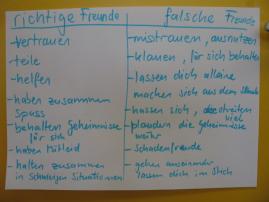 richtige Freunde
- vertrauen
- teile
- helfen
- haben zusammen
spass
- behalten Geheimnisse
für sich
- haben Mitleid
- halten zusammen
in schwierigen Situationen
falsche Freunde
- misstrauen, ausnutzen
- klauen, für sich behalten
- lassen dich alleine
machen sich aus dem Staub
- hassen sich, streiten
viel
- plaudern die Geheimnisse
weiter
- schadenfreude
- gehen auseinander
lassen dich im Stich